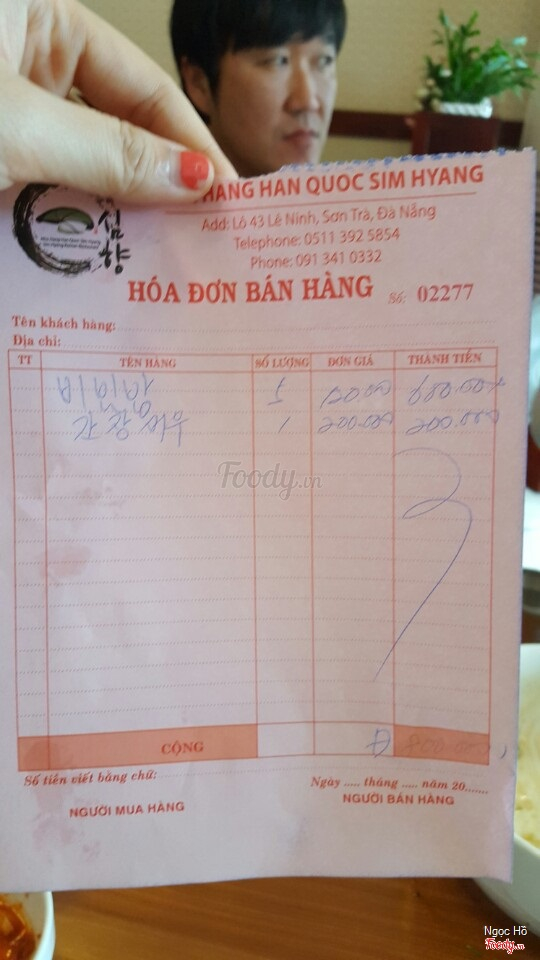 HÀNG HAN QUOC SIM HYANG
Add: Lô 43 Lê Ninh, Sơn Trà, Đà Nẵng
Telephone: 0511 392 5854
Phone: 091 341 0332
심향
HÓA ĐƠN BÁN HÀNG Số: 02277
Tên khách hàng:
Địa chỉ:
TT TÊN HÀNG SỐ LƯỢNG ĐƠN GIÁ THÀNH TIỀN
5
1 200.000 200.000
Foody.vn
CỘNG 800.000
Số tiền viết bằng chữ:
Ngày ..... tháng ..... năm 20.......
NGƯỜI MUA HÀNG
NGƯỜI BÁN HÀNG
Ngọc Hồ
Foody.vn